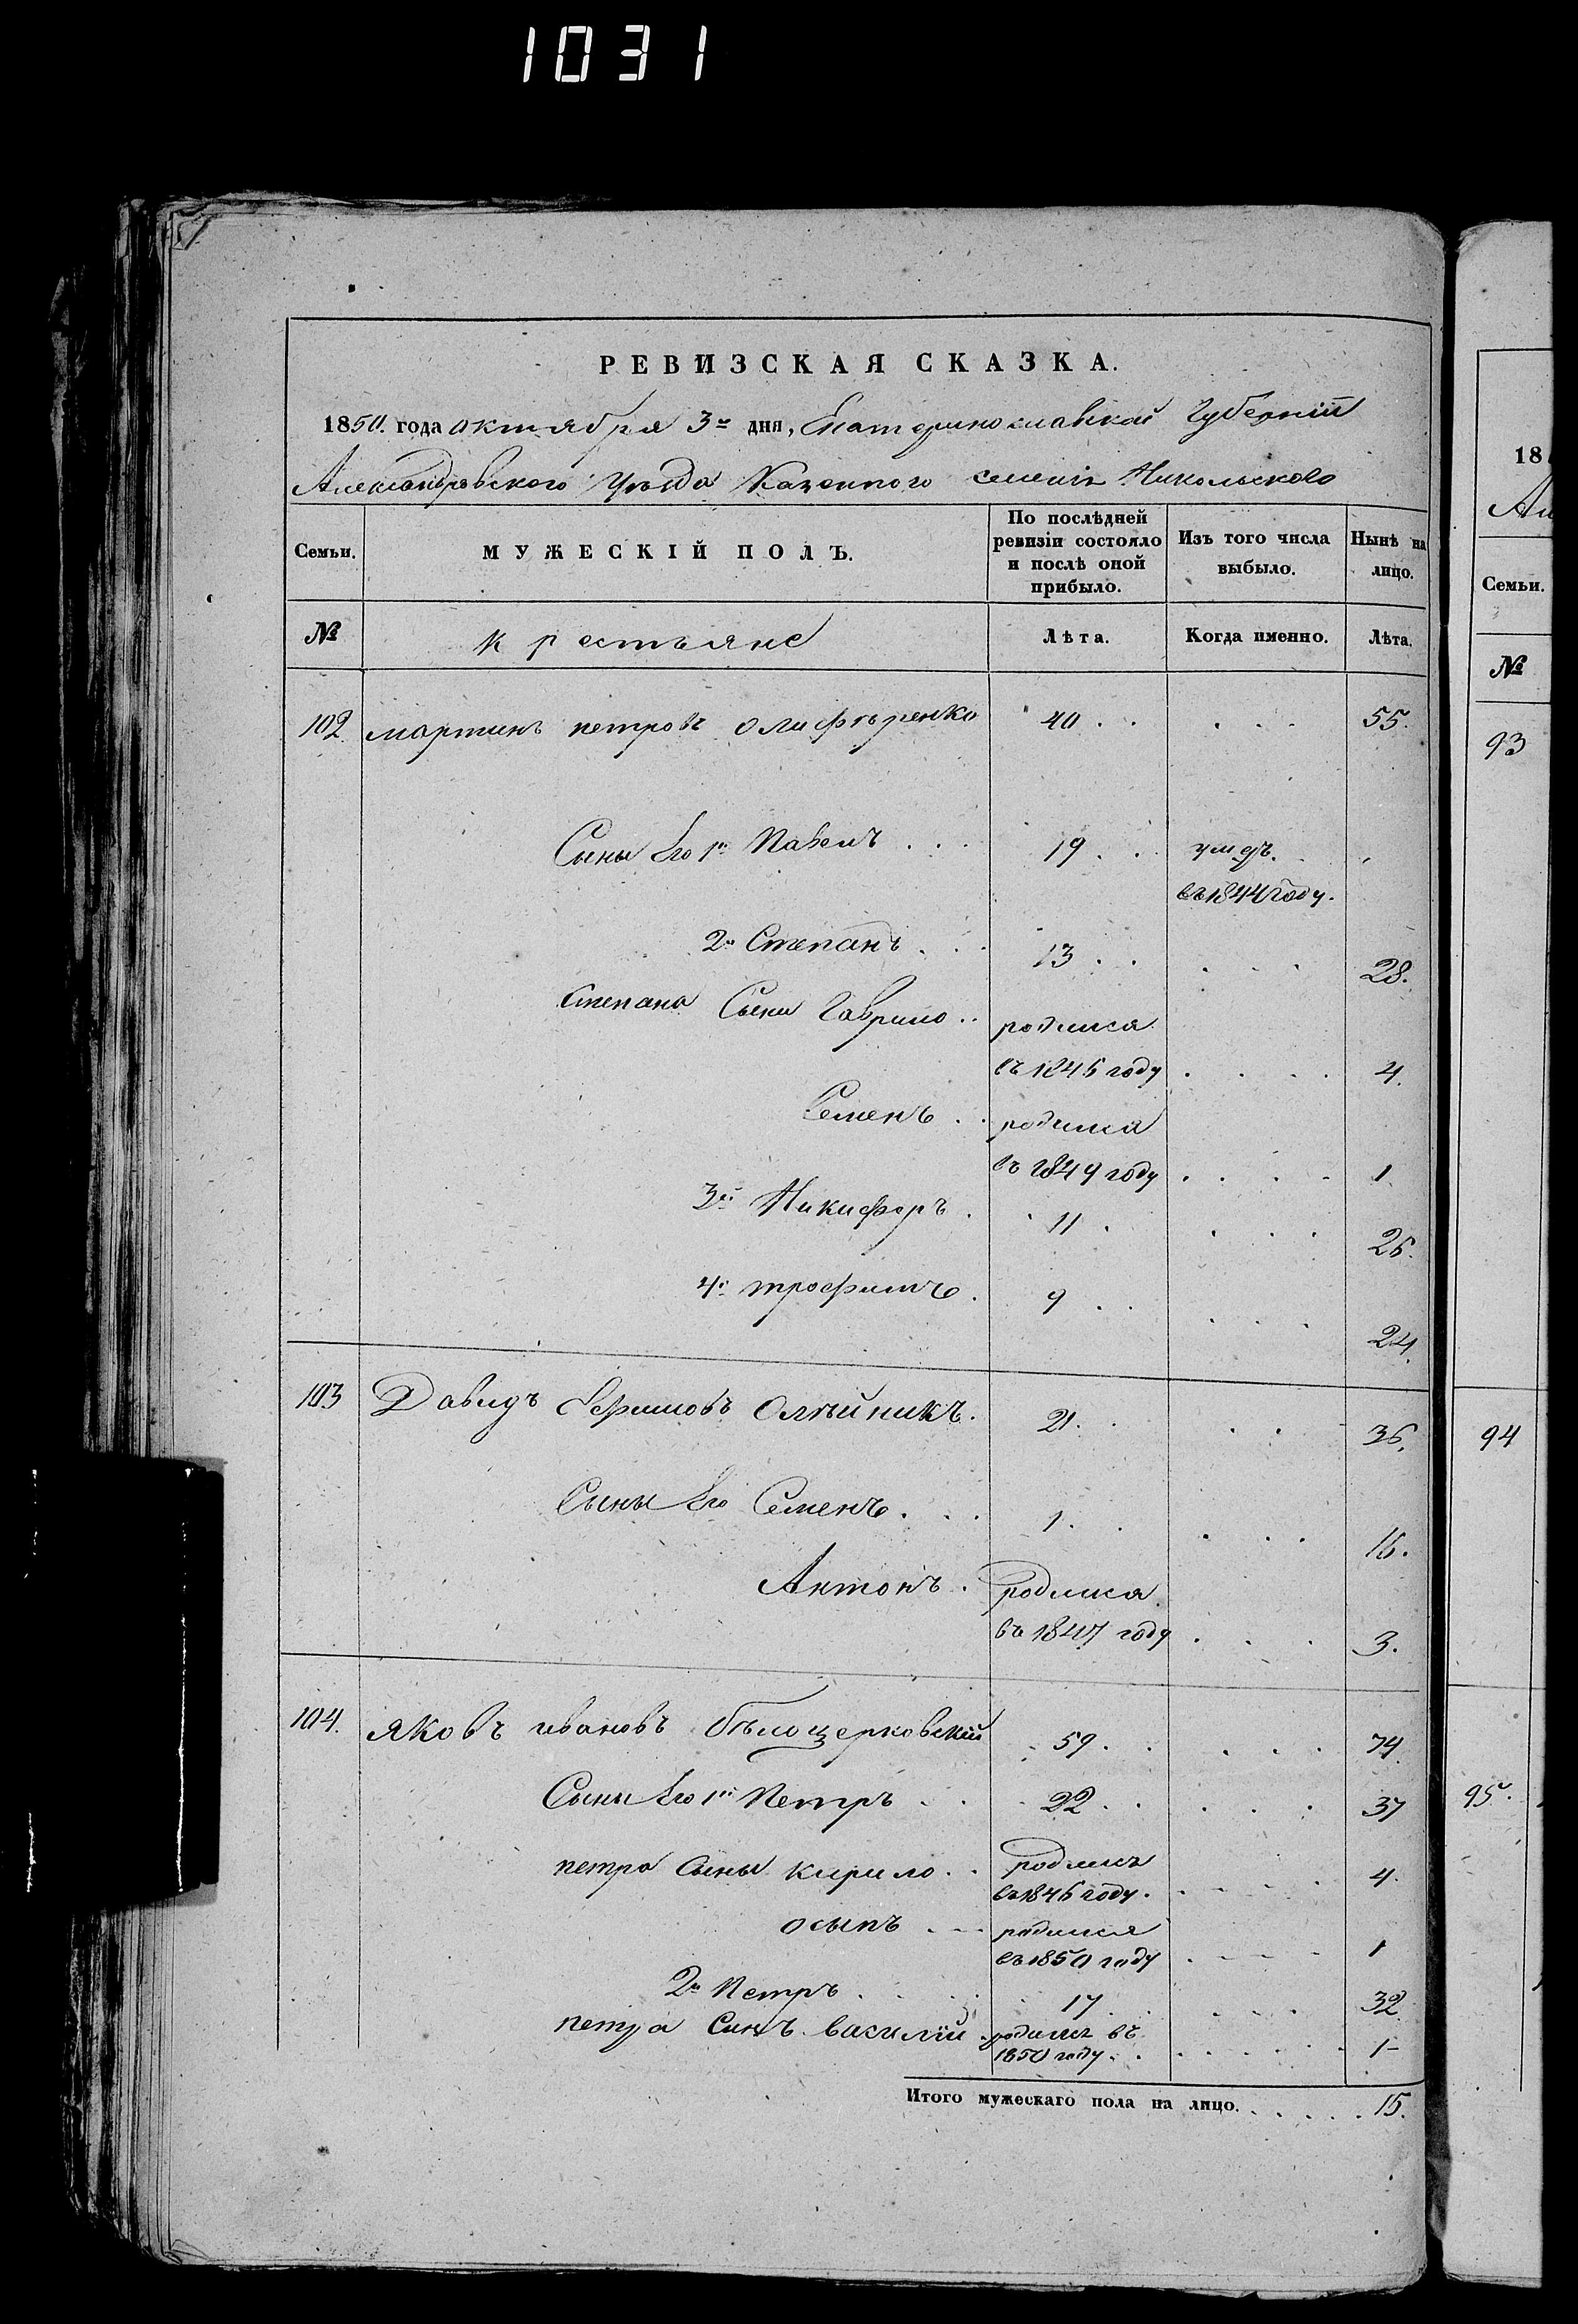 1031
РЕВИЗСКАЯ СКАЗКА.
1850. года октября 3го дня, Екатеринославской Губерніи
Александровского Уѣзда Казенного селенія Никольского
Семьи. МУЖЕСКІЙ ПОЛЪ. По послѣдней ревизіи состояло и послѣ оной прибыло. Изъ того числа выбыло. Нынѣ на лицо.
№ крестьяне Лѣта. Когда именно. Лѣта.
102. мартинъ петровъ олифѣренко 40 . . . . . 55.
Сыны Его 1й Павелъ . . . 19 . . умеръ.
въ 1844 году.
2й Степанъ . . . 13 . . . . . 28.
Степана Сыны Гаврило . . родился
въ 1846 году . . . . 4.
Семенъ . . родился
въ 1849 году . . . . 1
3й Никифоръ . 11 . . . . 26.
4й трофимъ . 9 . . . . . 24.
103 Давидъ Ефимовъ Олѣйникъ. 21. . . . 36.
Сыны Его Семенъ . . . 1 . . . . . 16.
Антонъ . родился
въ 1847 году . . . 3.
104. яковъ ивановъ бѣлоцерковскій 59 . . . . . 74.
Сыны Его 1й Петръ . . 22 . . . . . 37
петра Сыны кирило . . родился
въ 1846 году. . . . . 4.
осыпъ . . . родился
въ 1850 году . . . . 1
2й Петръ . . . 17 . . . . . 32
петра Сынъ василій . родился въ
1850 году . . . . . . . . 1
Итого мужескаго пола на лицо. . . . . . 15.
18
Ал
Семьи.
№
93
94
95.